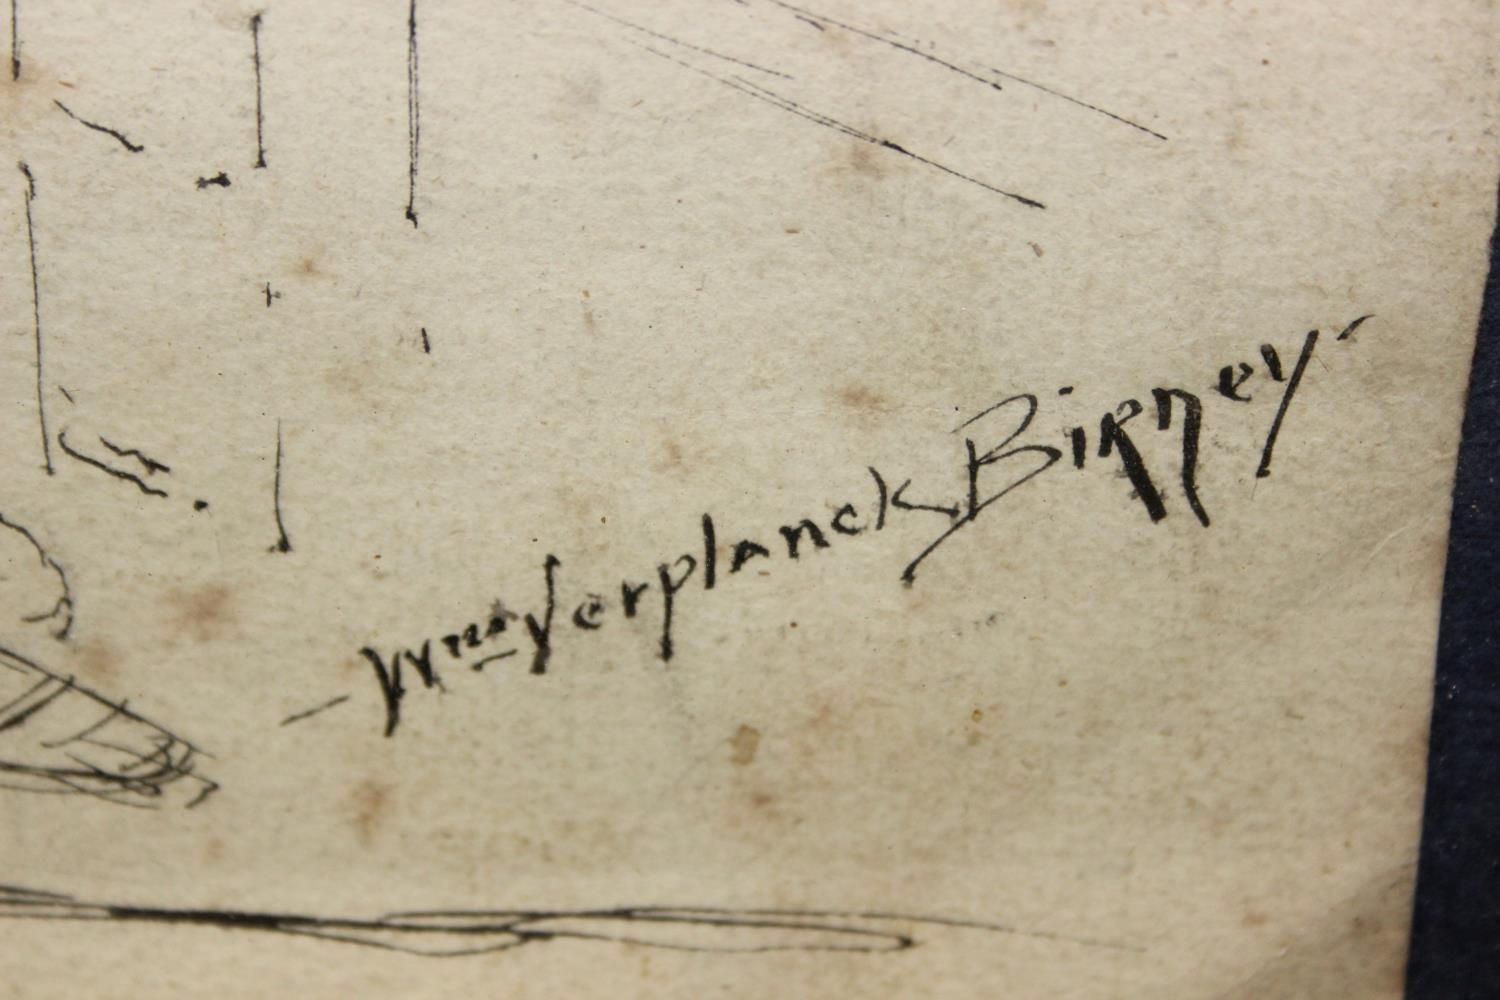 - Wm Verplanck Birney -